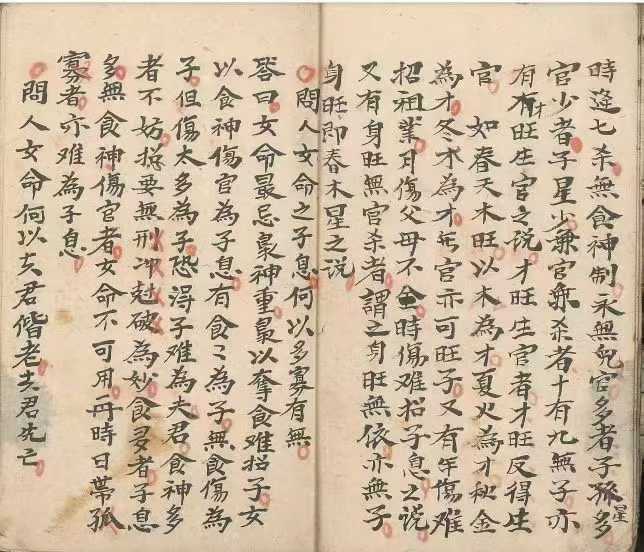 時逢七杀無食神制永無兒官多者子孤多星
官少者子星少兼官無杀者十有九無子亦
有才旺生官之说才旺生官者才旺反得生
官　如春天木旺以木為才夏火為才秋金
為才冬水為才無官亦可旺子又有年傷难
招祖業月傷父母不全時傷难招子息之说
又有身旺無官杀者謂之身旺無依亦無子
身旺即春木星之说
問人女命之子息何以多寡有無
答曰女命最忌梟神重梟以奪食难招子女
以食神傷官為子息有食〻為子無食傷為
子但傷太多為子恐得子难為夫君食神多
者不妨捴要無刑冲尅破為妙食多者子息
多無食神傷官者女命不可用再時日帶孤
寡者亦难為子息
問人女命何以夫君偕老夫君先亡